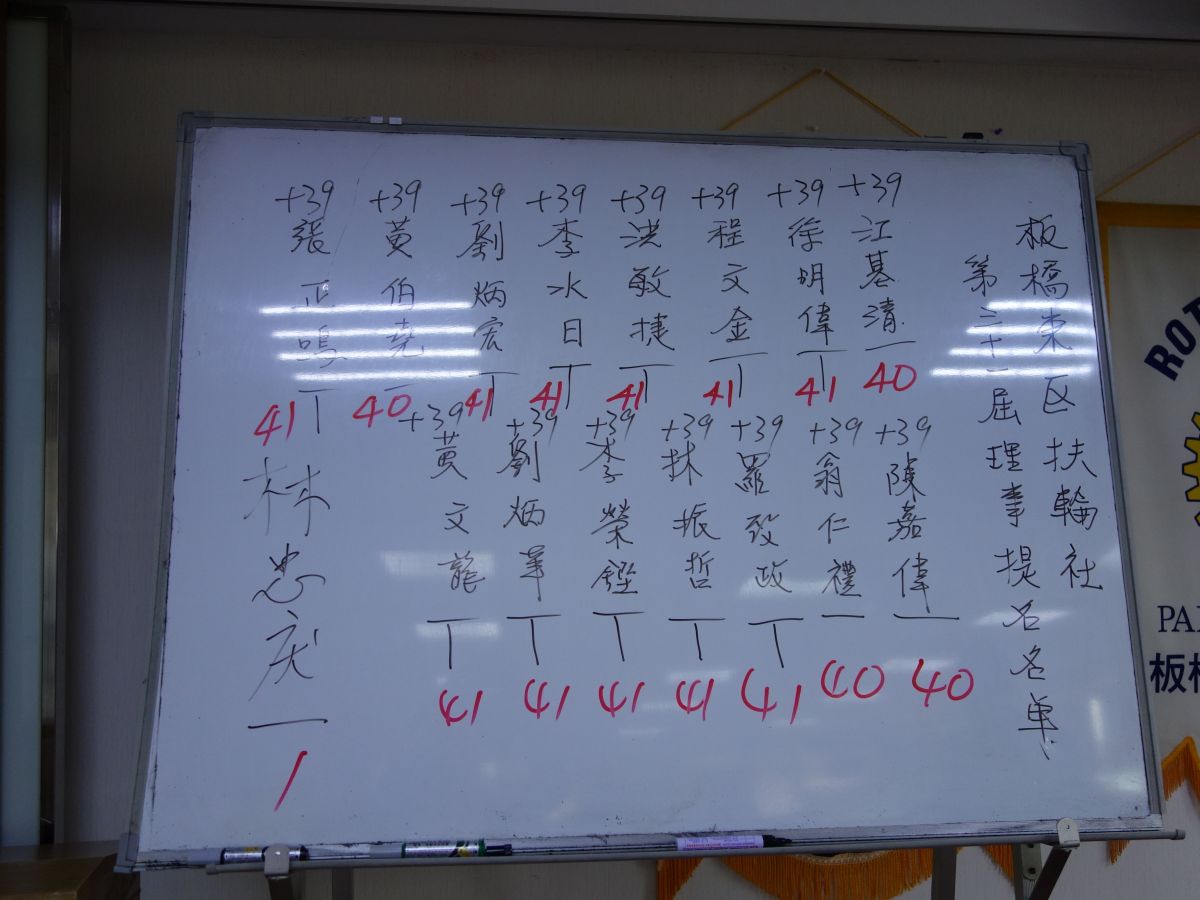 板橋東区扶輪社
第三十一屆理事提名名単
+39 江基清 一 40
+39 徐明偉 丅 41
+39 程文金 丅 41
+39 洪敏捷 丅 41
+39 李水日 丅 41
+39 劉炳宏 丅 41
+39 黃伯堯 一 40
+39 張正鳴 丅 41
+39 陳嘉偉 一 40
+39 翁仁禮 一 40
+39 羅致政 丅 41
+39 林振哲 丅 41
+39 李榮鏗 丅 41
+39 劉炳華 丅 41
+39 黃文龍 丅 41
林忠庆 一 1
ROT
PA
板